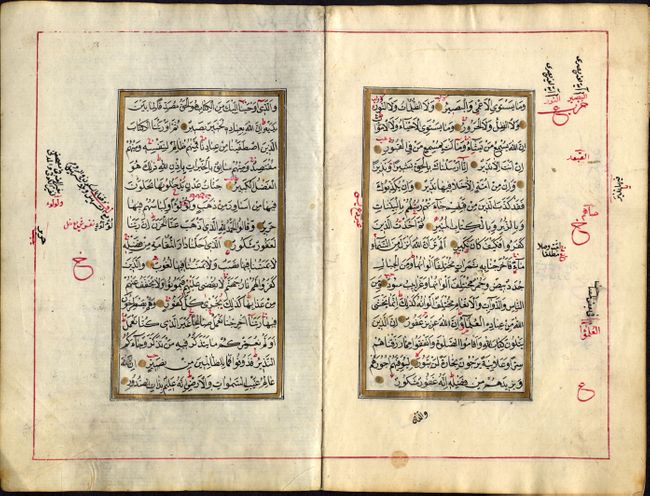 وَمَا يَسْتَوِي الْاَعْمٰى وَالْبَصِيرُ وَلَا الظُّلُمَاتُ وَلَا النُّورُ
وَلَا الظِّلُّ وَلَا الْحَرُورُ وَمَا يَسْتَوِي الْاَحْيَاءُ وَلَا الْاَمْوَاتُ
اِنَّ اللهَ يُسْمِعُ مَنْ يَشَاءُ وَمَا اَنْتَ بِمُسْمِعٍ مَنْ فِي الْقُبُورِ
اِنْ اَنْتَ اِلَّا نَذِيرٌ اِنَّا اَرْسَلْنَاكَ بِالْحَقِّ بَشِيرًا وَنَذِيرًا
وَاِنْ مِنْ اُمَّةٍ اِلَّا خَلَا فِيهَا نَذِيرٌ وَاِنْ يُكَذِّبُوكَ
فَقَدْ كَذَّبَ الَّذِينَ مِنْ قَبْلِهِمْ جَاءَتْهُمْ رُسُلُهُمْ بِالْبَيِّنَاتِ
وَبِالزُّبُرِ وَبِالْكِتَابِ الْمُنِيرِ ثُمَّ اَخَذْتُ الَّذِينَ
كَفَرُوا فَكَيْفَ كَانَ نَكِيرِ اَلَمْ تَرَ اَنَّ اللهَ اَنْزَلَ مِنَ السَّمَاءِ
مَاءً فَاَخْرَجْنَا بِهِ ثَمَرَاتٍ مُخْتَلِفًا اَلْوَانُهَا وَمِنَ الْجِبَالِ
جُدَدٌ بِيضٌ وَحُمْرٌ مُخْتَلِفٌ اَلْوَانُهَا وَغَرَابِيبُ سُودٌ وَمِنَ
النَّاسِ وَالدَّوَابِّ وَالْاَنْعَامِ مُخْتَلِفٌ اَلْوَانُهُ كَذٰلِكَ اِنَّمَا يَخْشَى
اللهَ مِنْ عِبَادِهِ الْعُلَمَاءُ اِنَّ اللهَ عَزِيزٌ غَفُورٌ اِنَّ الَّذِينَ
يَتْلُونَ كِتَابَ اللهِ وَاَقَامُوا الصَّلٰوةَ وَاَنْفَقُوا مِمَّا رَزَقْنَاهُمْ
سِرًّا وَعَلَانِيَةً يَرْجُونَ تِجَارَةً لَنْ تَبُورَ لِيُوَفِّيَهُمْ اُجُورَهُمْ
وَيَزِيدَهُمْ مِنْ فَضْلِهِ اِنَّهُ غَفُورٌ شَكُورٌ
والذي
وَالَّذِي اَوْحَيْنَا اِلَيْكَ مِنَ الْكِتَابِ هُوَ الْحَقُّ مُصَدِّقًا لِمَا بَيْنَ
يَدَيْهِ اِنَّ اللهَ بِعِبَادِهِ لَخَبِيرٌ بَصِيرٌ ثُمَّ اَوْرَثْنَا الْكِتَابَ
الَّذِينَ اصْطَفَيْنَا مِنْ عِبَادِنَا فَمِنْهُمْ ظَالِمٌ لِنَفْسِهِ وَمِنْهُمْ
مُقْتَصِدٌ وَمِنْهُمْ سَابِقٌ بِالْخَيْرَاتِ بِاِذْنِ اللهِ ذٰلِكَ هُوَ
الْفَضْلُ الْكَبِيرُ جَنَّاتُ عَدْنٍ يَدْخُلُونَهَا يُحَلَّوْنَ
فِيهَا مِنْ اَسَاوِرَ مِنْ ذَهَبٍ وَلُؤْلُؤًا وَلِبَاسُهُمْ فِيهَا
حَرِيرٌ وَقَالُوا الْحَمْدُ لِلّٰهِ الَّذِي اَذْهَبَ عَنَّا الْحَزَنَ اِنَّ رَبَّنَا
لَغَفُورٌ شَكُورٌ الَّذِي اَحَلَّنَا دَارَ الْمُقَامَةِ مِنْ فَضْلِهِ
لَا يَمَسُّنَا فِيهَا نَصَبٌ وَلَا يَمَسُّنَا فِيهَا لُغُوبٌ وَالَّذِينَ
كَفَرُوا لَهُمْ نَارُ جَهَنَّمَ لَا يُقْضٰى عَلَيْهِمْ فَيَمُوتُوا وَلَا يُخَفَّفُ عَنْهُمْ
مِنْ عَذَابِهَا كَذٰلِكَ نَجْزِي كُلَّ كَفُورٍ وَهُمْ يَصْطَرِخُونَ
فِيهَا رَبَّنَا اَخْرِجْنَا نَعْمَلْ صَالِحًا غَيْرَ الَّذِي كُنَّا نَعْمَلُ
اَوَلَمْ نُعَمِّرْكُمْ مَا يَتَذَكَّرُ فِيهِ مَنْ تَذَكَّرَ وَجَاءَكُمُ
النَّذِيرُ فَذُوقُوا فَمَا لِلظَّالِمِينَ مِنْ نَصِيرٍ اِنَّ اللهَ
عَالِمُ غَيْبِ السَّمٰوَاتِ وَالْاَرْضِ اِنَّهُ عَلِيمٌ بِذَاتِ الصُّدُورِ